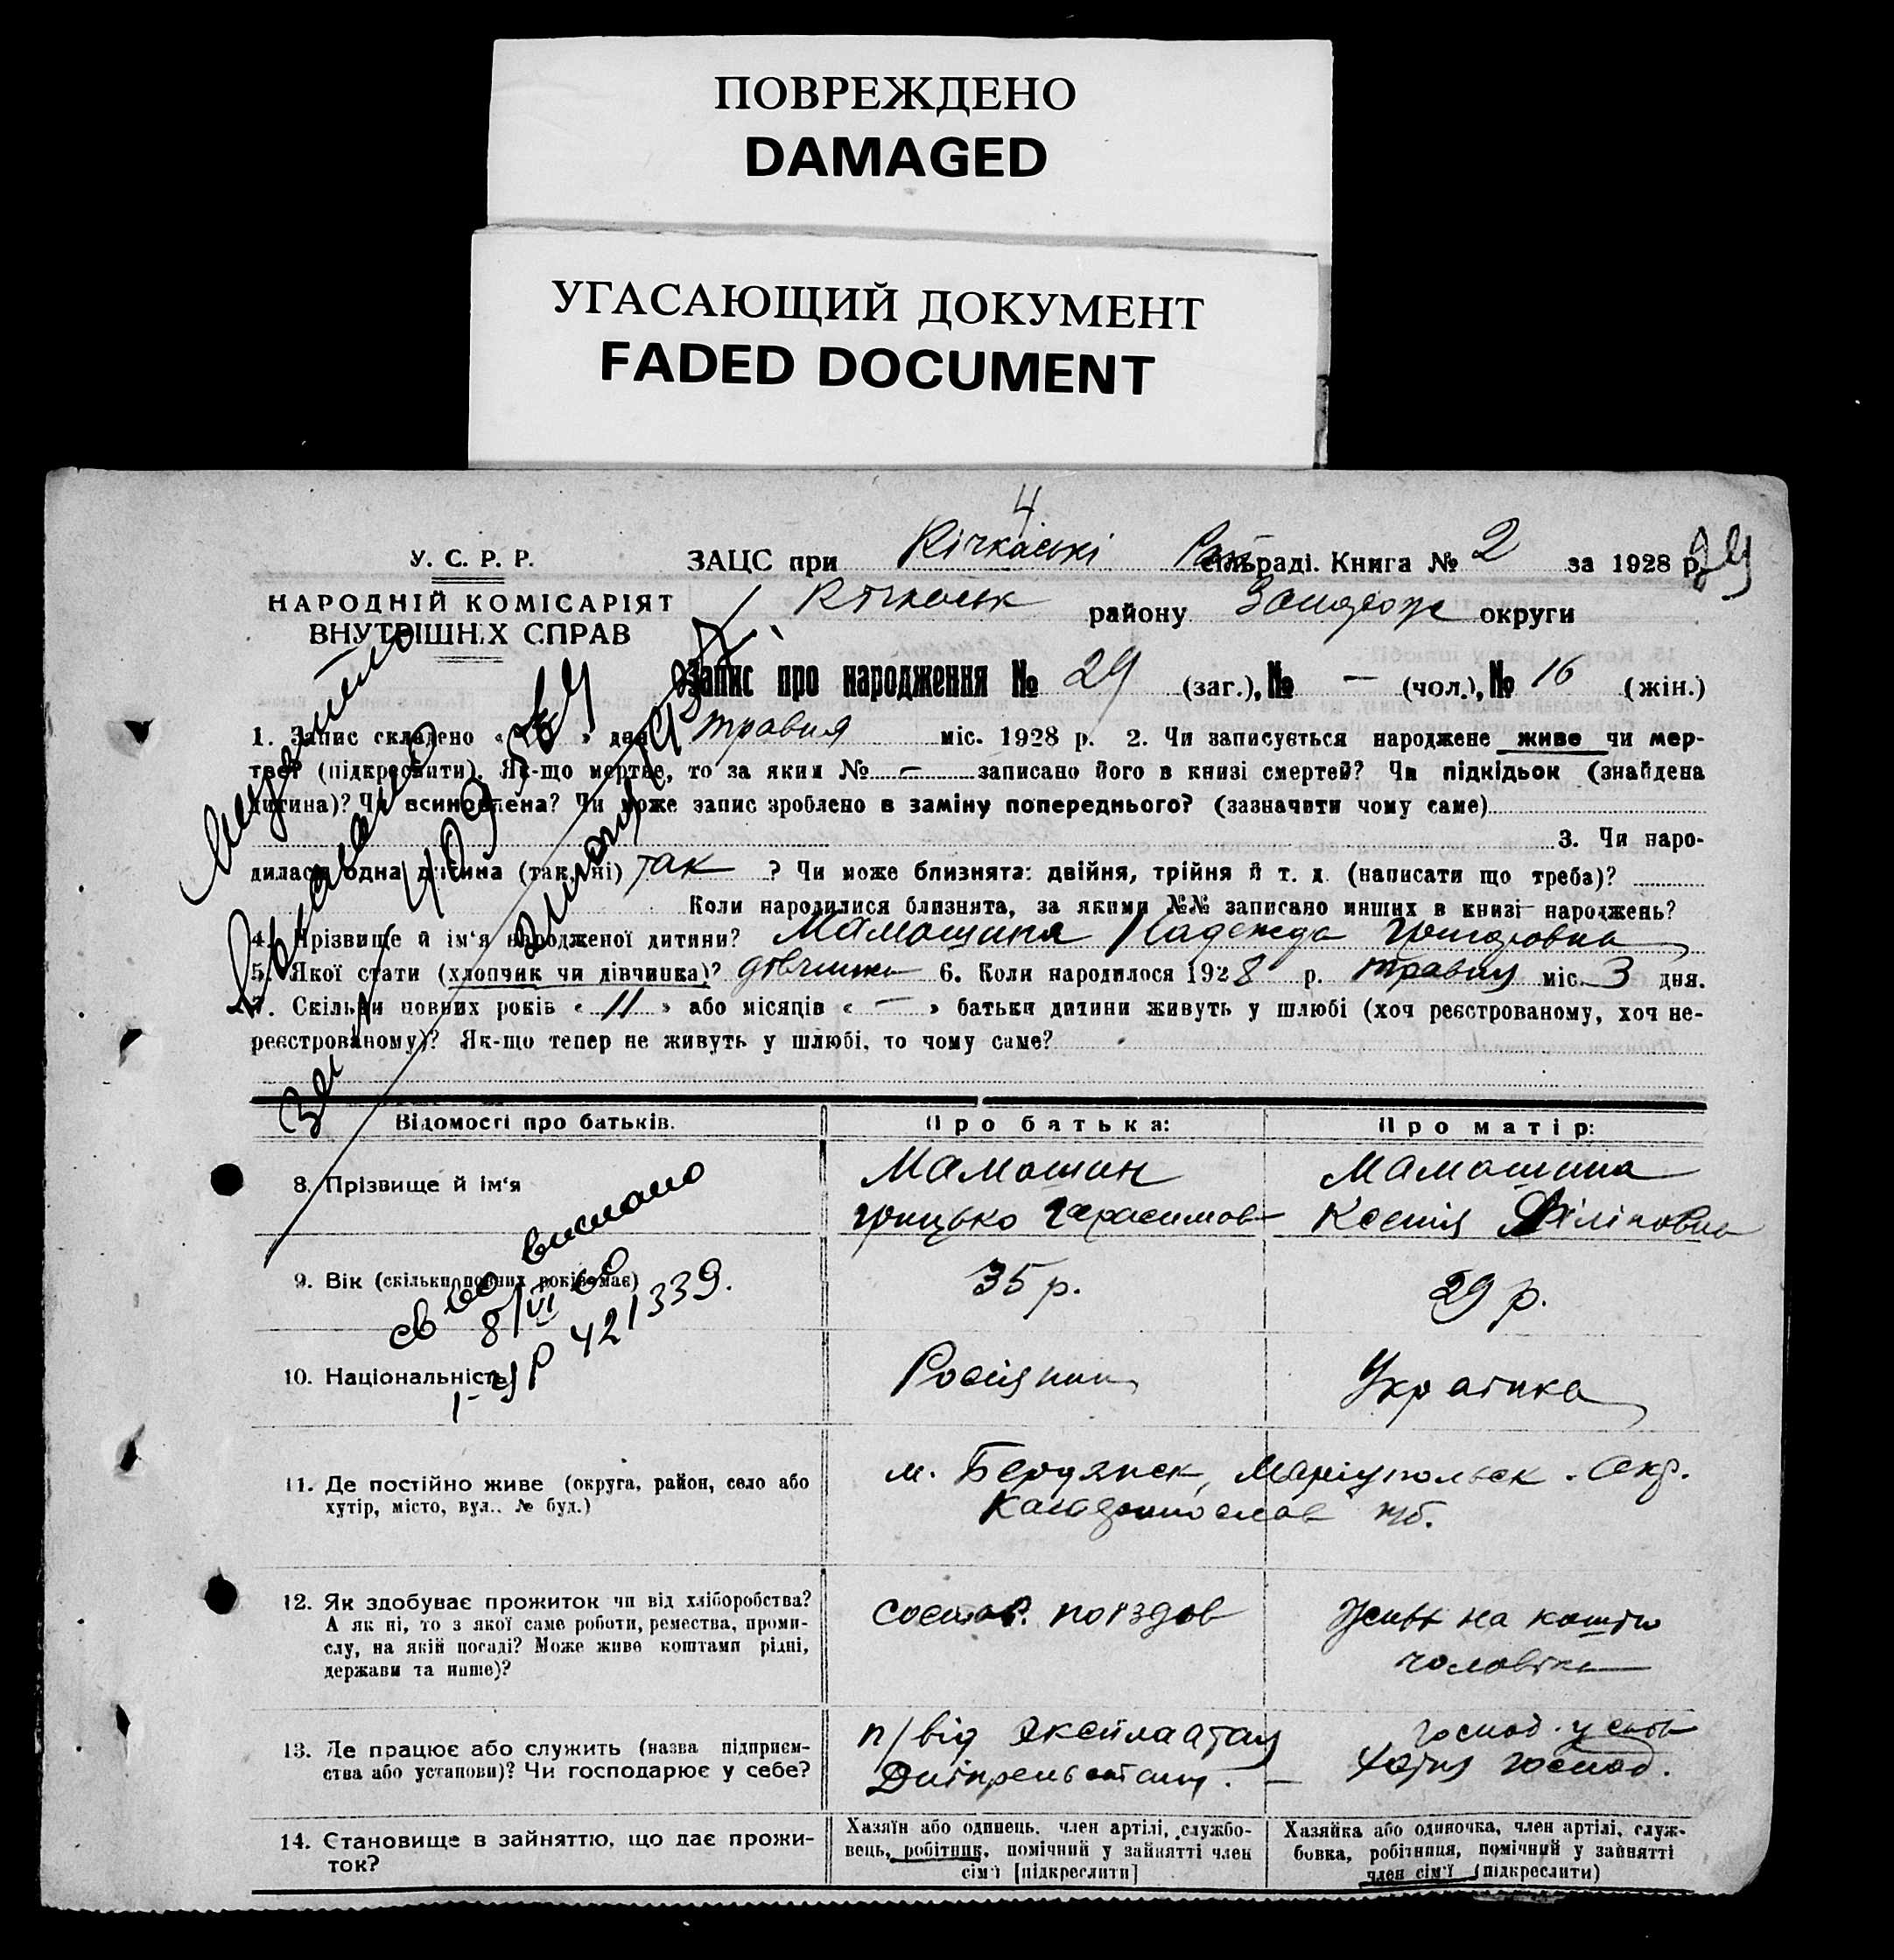 ПОВРЕЖДЕНО
DAMAGED
УГАСАЮЩИЙ ДОКУМЕНТ
FADED DOCUMENT
4
У. С. Р. Р.
НАРОДНІЙ КОМІСАРІЯТ
ВНУТРІШНІХ СПРАВ
ЗАЦС при Кічкаські раді. Книга № 2 за 1928 р. 29
Кічкаськ району Запоріж округи
Запис про народження № 29 (заг.), № — (чол.), № 16 (жін.)
1. Запис складено « » дня травня міс. 1928 р. 2. Чи записується народжене живе чи мер-
тве? (підкреслити). Як-що мертве, то за яким № — записано його в книзі смертей? Чи підкідьок (знайдена
дитина)? Чи всиновлена? Чи може запис зроблено в заміну попереднього? (зазначити чому саме)
3. Чи наро-
дилася одна дитина (так, ні) так ? Чи може близнята: двійня, трійня й т. д. (написати що треба)?
Коли народилися близнята, за якими №№ записано инших в книзі народжень?
4. Прізвище й ім‘я народженої дитини? Мамошина Надежда Григоровна
5. Якої стати (хлопчик чи дівчинка)? дівчинка 6. Коли народилося 1928 р. травня міс. 3 дня.
7. Скільки повних років « 11 » або місяців « — » батьки дитини живуть у шлюбі (хоч реєстрованому, хоч не-
реєстрованому)? Як-що тепер не живуть у шлюбі, то чому саме?
Відомості про батьків.
Про батька:
Про матір:
8. Прізвище й ім‘я
Мамошин
Грицько Герасимов
Мамошина
Ксенія Філіповна
св во выслано
8/VI
9. Вік (скільки повних років має)
35 р.
29 р.
УР 421339.
10. Національність
Росіянин
Українка
11. Де постійно живе (округа, район, село або
хутір, місто, вул., № буд.)
м. Бердянск, Маріупольск. Окр.
12. Як здобуває прожиток чи від хліборобства?
А як ні, то з якої саме роботи, ремества, проми-
слу, на якій посаді? Може живе коштами рідні,
держави та инше)?
состав. поїздов
Живе на кошти
чоловіка
13. Де працює або служить (назва підприєм-
ства або установи)? Чи господарює у себе?
п/від Эксплоатац
Дніпрельстану. —
господ.
хатня господ.
14. Становище в зайняттю, що дає прожи-
ток?
Хазяїн або одинець, член артілі, службо-
вець, робітник, помічний у зайнятті член
сім‘ї [підкреслити]
Хазяйка або одиночка, член артілі, служ-
бовка, робітниця, помічний у зайнятті
член сім‘ї (підкреслити)